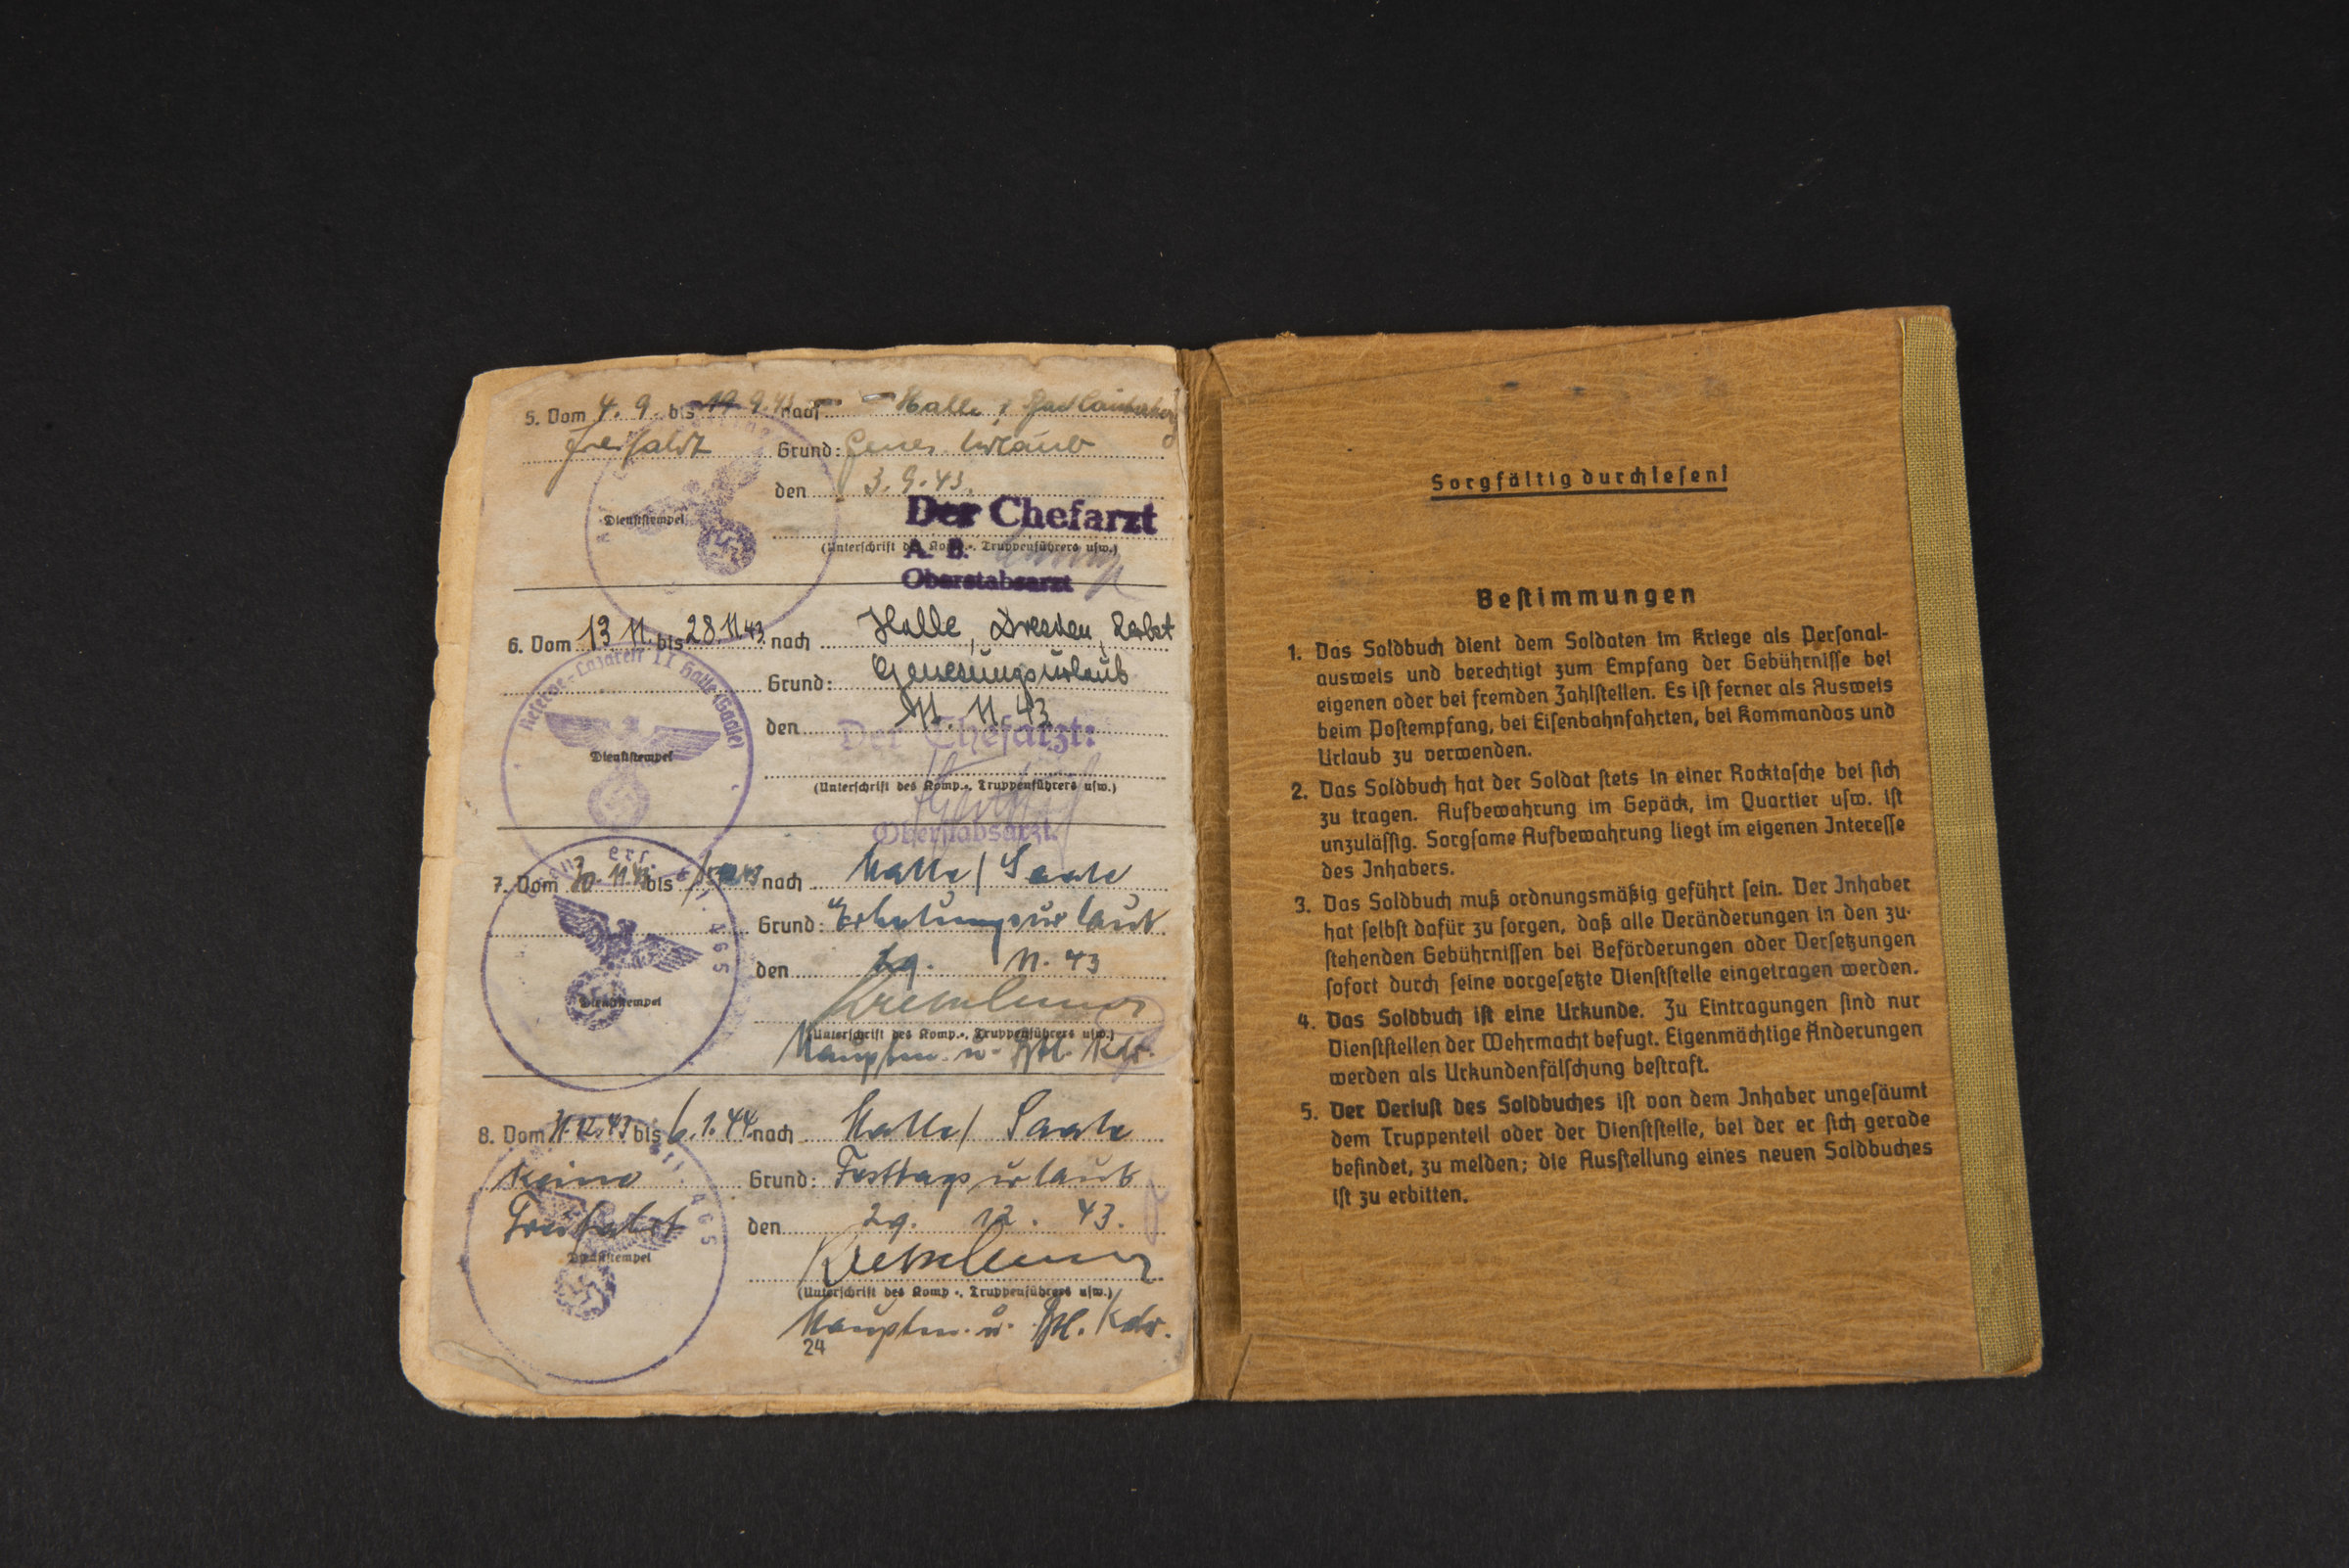 5. Vom 4. 9. bis 19. 9. 43 nach Halle
Freifahrt Grund: Genes. Urlaub
den 3. 9. 43.
Dienststempel
Der Chefarzt
(Unterschrift des Komp.-, Truppenführers usw.)
A. B.
Oberstabsarzt
6. Vom 13 11. bis 28 11. 43. nach Halle, Dresden,
Reserve-Lazarett II Halle (Saale)
Grund: Genesungsurlaub
den 11. 43
Der Chefarzt:
Dienststempel
(Unterschrift des Komp.-, Truppenführers usw.)
Oberstabsarzt
7. Vom 30. 11. 43 bis nach Halle / Saale
Grund: Erholungsurlaub
465
den 29. 11. 43
Dienststempel
(Unterschrift des Komp.-, Truppenführers usw.)
Hauptm. u. Kdr.
8. Vom 31. 12. 43 bis 6. 1. 44 nach Halle / Saale
Keine Grund: Festtagsurlaub
465
Freifahrt den 29. 12. 43.
Dienststempel
(Unterschrift des Komp.-, Truppenführers usw.)
Hauptm. u. Kdr.
24
Sorgfältig durchlesen!
Bestimmungen
1. Das Soldbuch dient dem Soldaten im Kriege als Personal-
ausweis und berechtigt zum Empfang der Gebührnisse bei
eigenen oder bei fremden Zahlstellen. Es ist ferner als Ausweis
beim Postempfang, bei Eisenbahnfahrten, bei Kommandos und
Urlaub zu verwenden.
2. Das Soldbuch hat der Soldat stets in einer Rocktasche bei sich
zu tragen. Aufbewahrung im Gepäck, im Quartier usw. ist
unzulässig. Sorgsame Aufbewahrung liegt im eigenen Interesse
des Inhabers.
3. Das Soldbuch muß ordnungsmäßig geführt sein. Der Inhaber
hat selbst dafür zu sorgen, daß alle Veränderungen in den zu-
stehenden Gebührnissen bei Beförderungen oder Versetzungen
sofort durch seine vorgesetzte Dienststelle eingetragen werden.
4. Das Soldbuch ist eine Urkunde. Zu Eintragungen sind nur
Dienststellen der Wehrmacht befugt. Eigenmächtige Änderungen
werden als Urkundenfälschung bestraft.
5. Der Verlust des Soldbuches ist von dem Inhaber ungesäumt
dem Truppenteil oder der Dienststelle, bei der er sich gerade
befindet, zu melden; die Ausstellung eines neuen Soldbuches
ist zu erbitten.